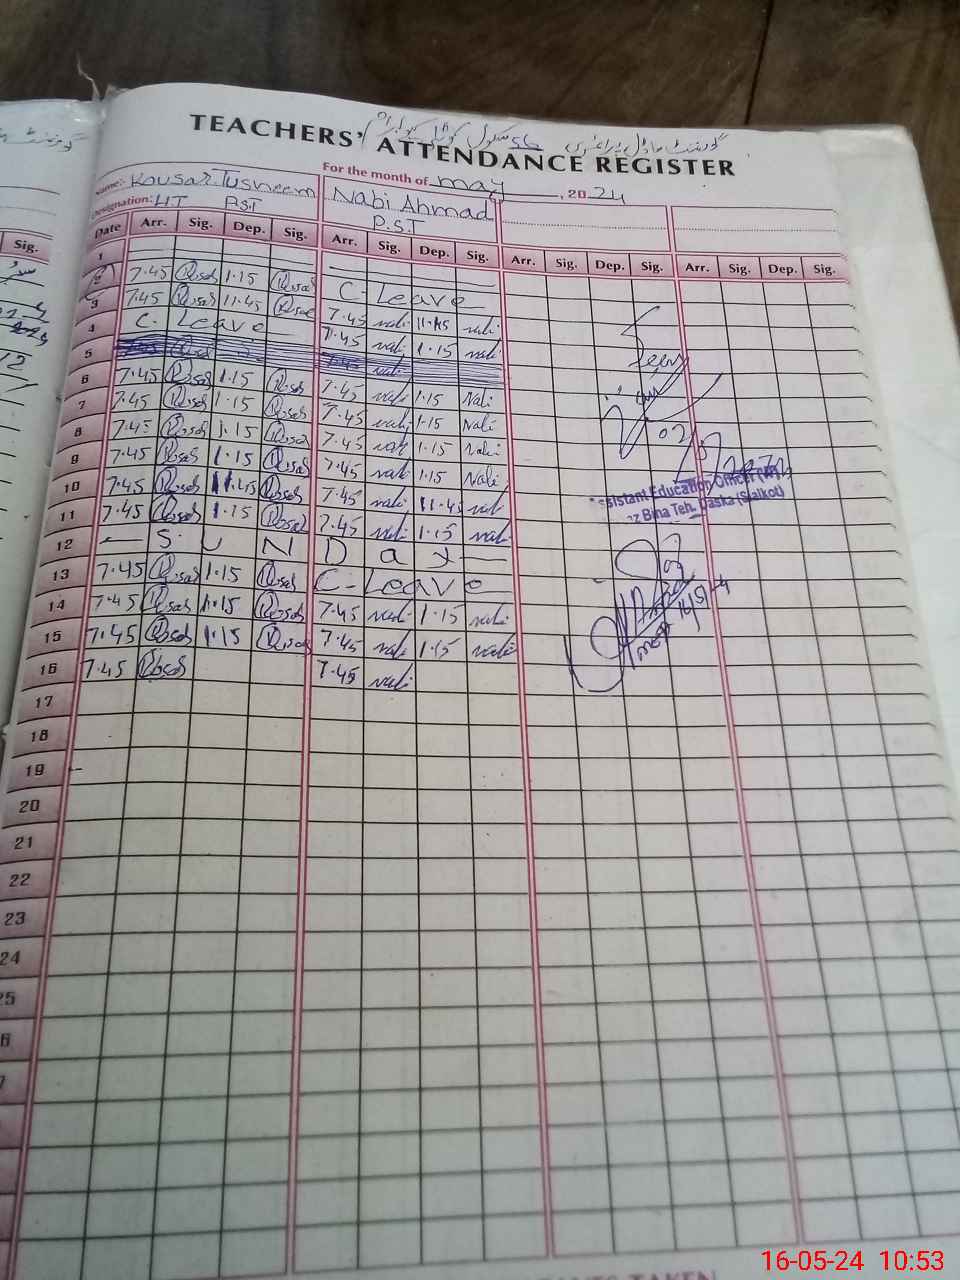 گورنمنٹ ماڈل پرائمری سکول
TEACHERS' ATTENDANCE REGISTER
For the month of may, 2024
Name:- Kousar Tusneem Nabi Ahmad
Designation: HT PST P.S.T
Date Arr. Sig. Dep. Sig. Arr. Sig. Dep. Sig. Arr. Sig. Dep. Sig. Arr. Sig. Dep. Sig.
Sig.
1
2 7.45 1.15 C-Leave
3 7.45 11.45 7.45 nabi 11.45 nabi
4 C. Leave 7.45 nabi 1.15 nabi
5
6 7.45 1.15 7.45 nabi 1.15 Nabi
7 7.45 1.15 7.45 nabi 1.15 Nabi
8 7.45 1.15 7.45 nabi 1.15 Nabi
9 7.45 1.15 7.45 nabi 1.15 Nabi
10 7.45 11.45 7.45 nabi 11.45 nabi
11 7.45 1.15 7.45 nabi 1.15 nabi
12 SUNDay
13 7.45 1.15 C-Leave
14 7.45 1.15 7.45 nabi 1.15 nabi
15 7.45 1.15 7.45 nabi 1.15 nabi
16 7.45 7.45 nabi
17
18
19
20
21
22
23
24
25
Seen
Assistant Education Officer
Bina Teh. Daska (Sialkot)
16/5/24
16-05-24 10:53